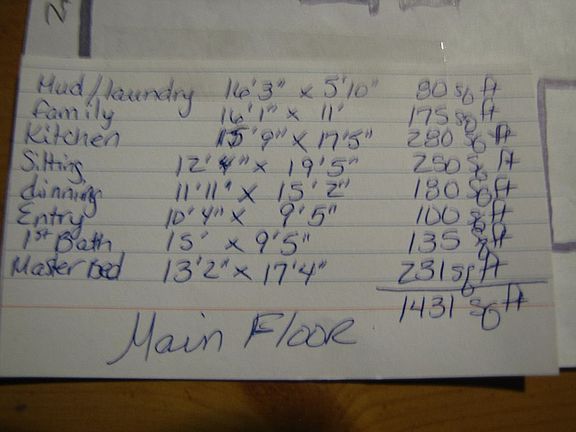 Mud/laundry 16'3" x 5'10" 80 sq ft
family 16'1" x 11' 175 sq ft
Kitchen 15'9" x 17'5" 280 sq ft
Sitting 12'4" x 19'5" 250 sq ft
dinning 11'11" x 15'2" 180 sq ft
Entry 10'4" x 9'5" 100 sq ft
1st Bath 15' x 9'5" 135 sq ft
Master Bed 13'2" x 17'4" 231 sq ft
1431 sq ft
Main Floor